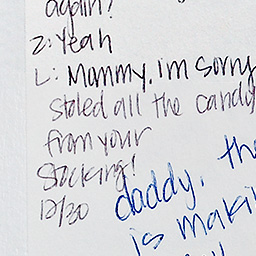 again?
Z: Yeah
L: Mommy, im sorry
stoled all the candy
from your
stocking!
12/30
daddy, the
is maki